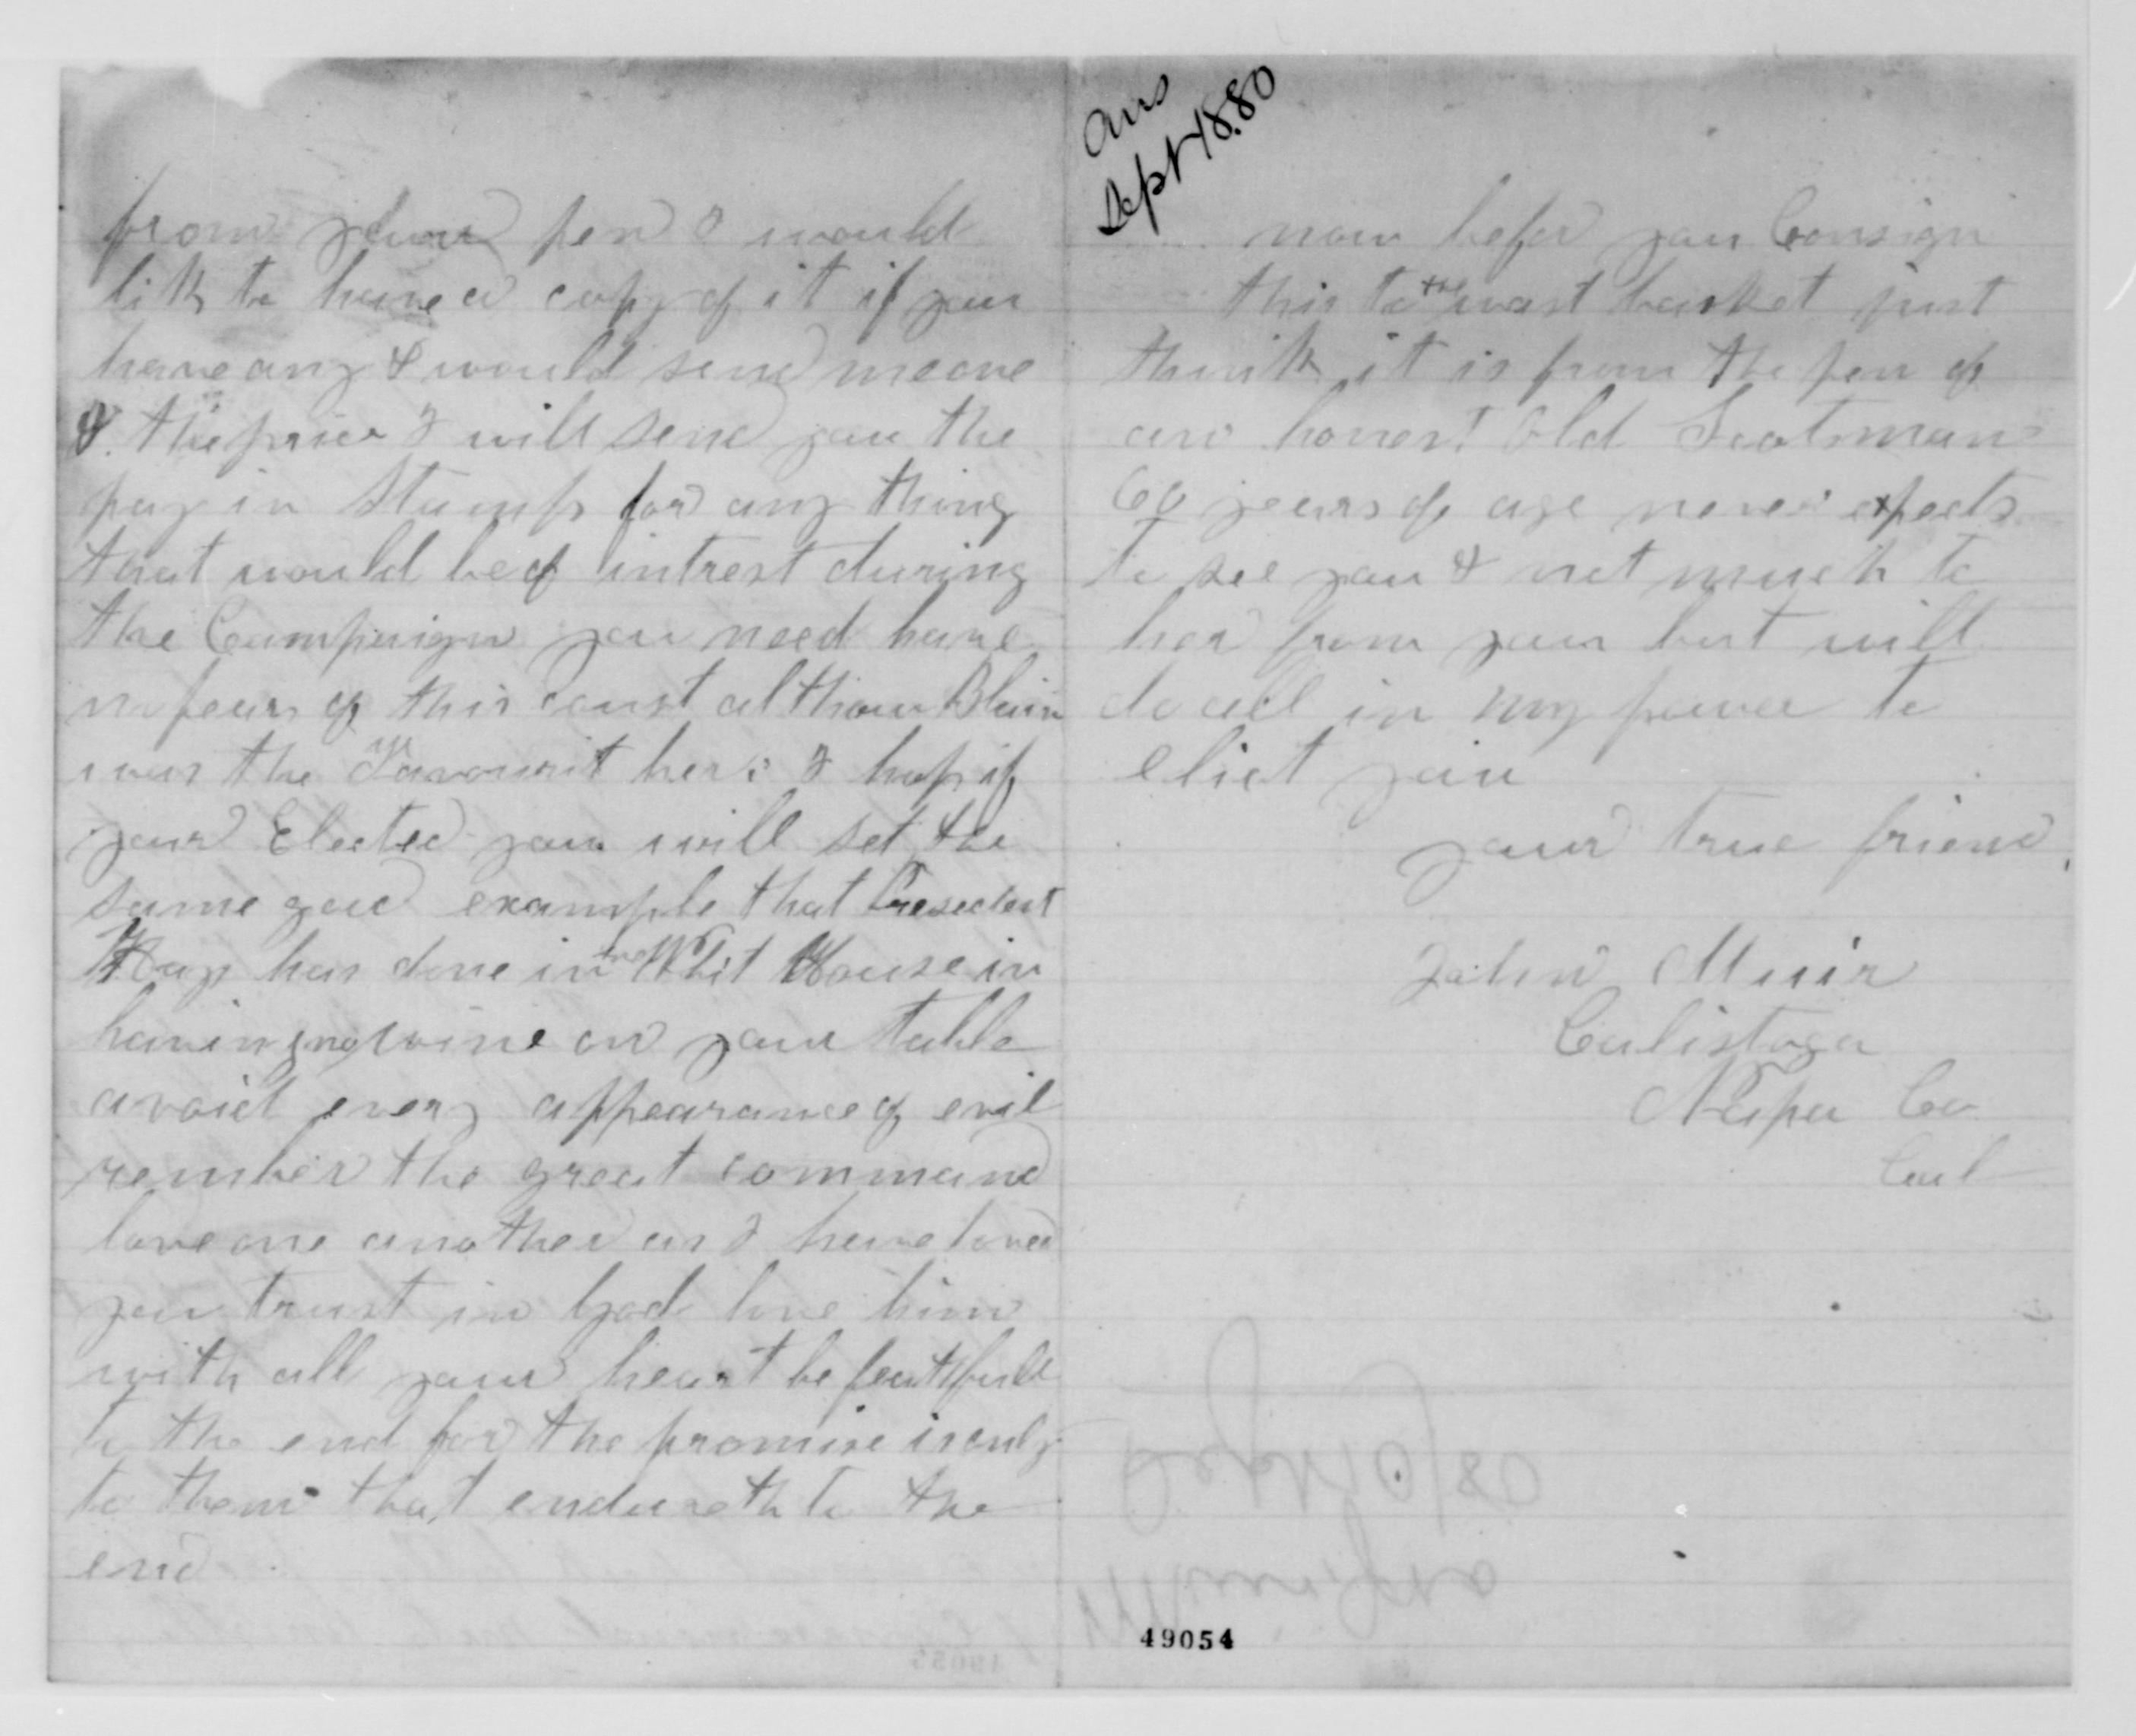 from your pen I would
lik to have a copy of it if you
have any & would send me one
& the price I will send you the
pay in Stamps for any thing
that would be of intrest during
the Campaign you need have
no fears of this coust althow Blain
was the Favourit here I hop if
your Elected you will set the
same good example that Presedent
Hays has done in the Whit House in
having no wine on your table
avoid every appearance of evil
rember the great command
love one another as I have loved
you trust in God love him
with all your heart be feathfull
to the end for the promise is only
to them that endureth to the
end
Ans
Sept 18.80
now befor you Consign
this to the wast basket just
think it is from the pen of
an honest Old Scotsman
60 years of age never expects
to see you & not much to
her from you but will
do all in my power to
elict you
your true friend
John Muir
Calistoga
Napa Co
Cal
49054